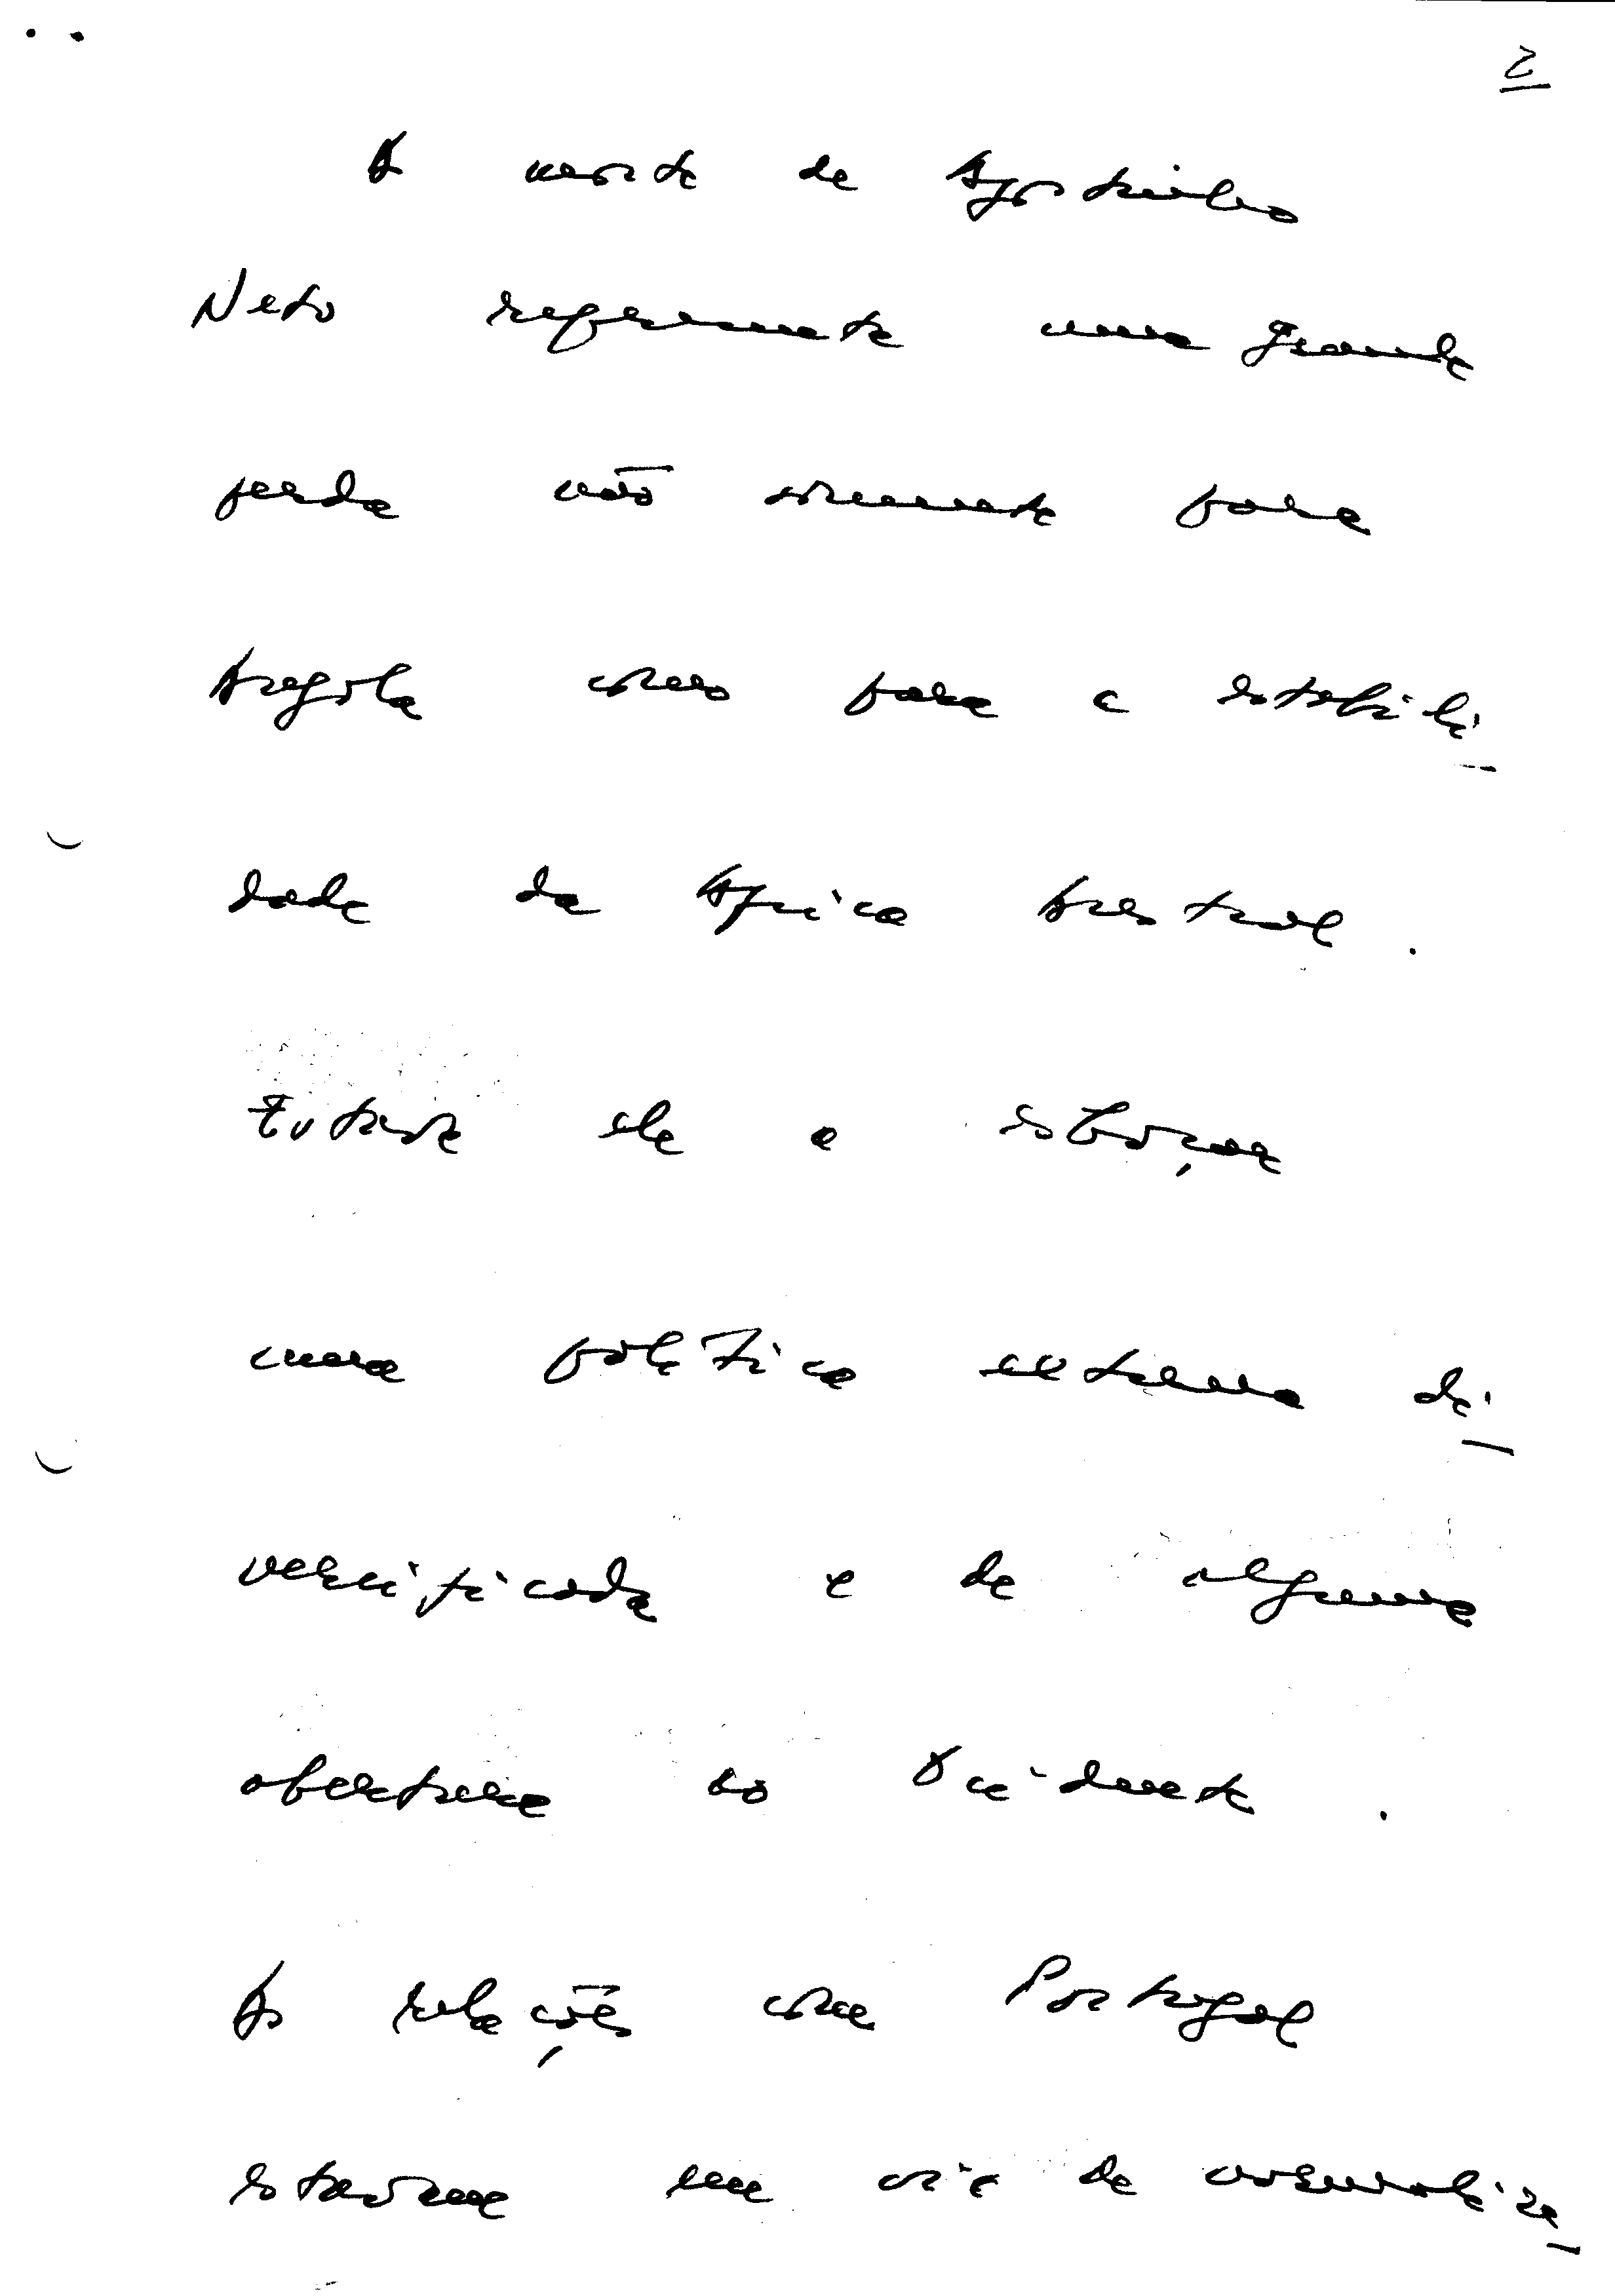 2
A morte de Agostinho
Neto representa uma grande
perda não somente para
Angola como para a estabili-
dade da Africa Austral.
Estava ele a esboçar
uma política externa di-
versificada e de alguma
abertura ao Ocidente.
As relações com Portugal
estavam em via de normaliza-